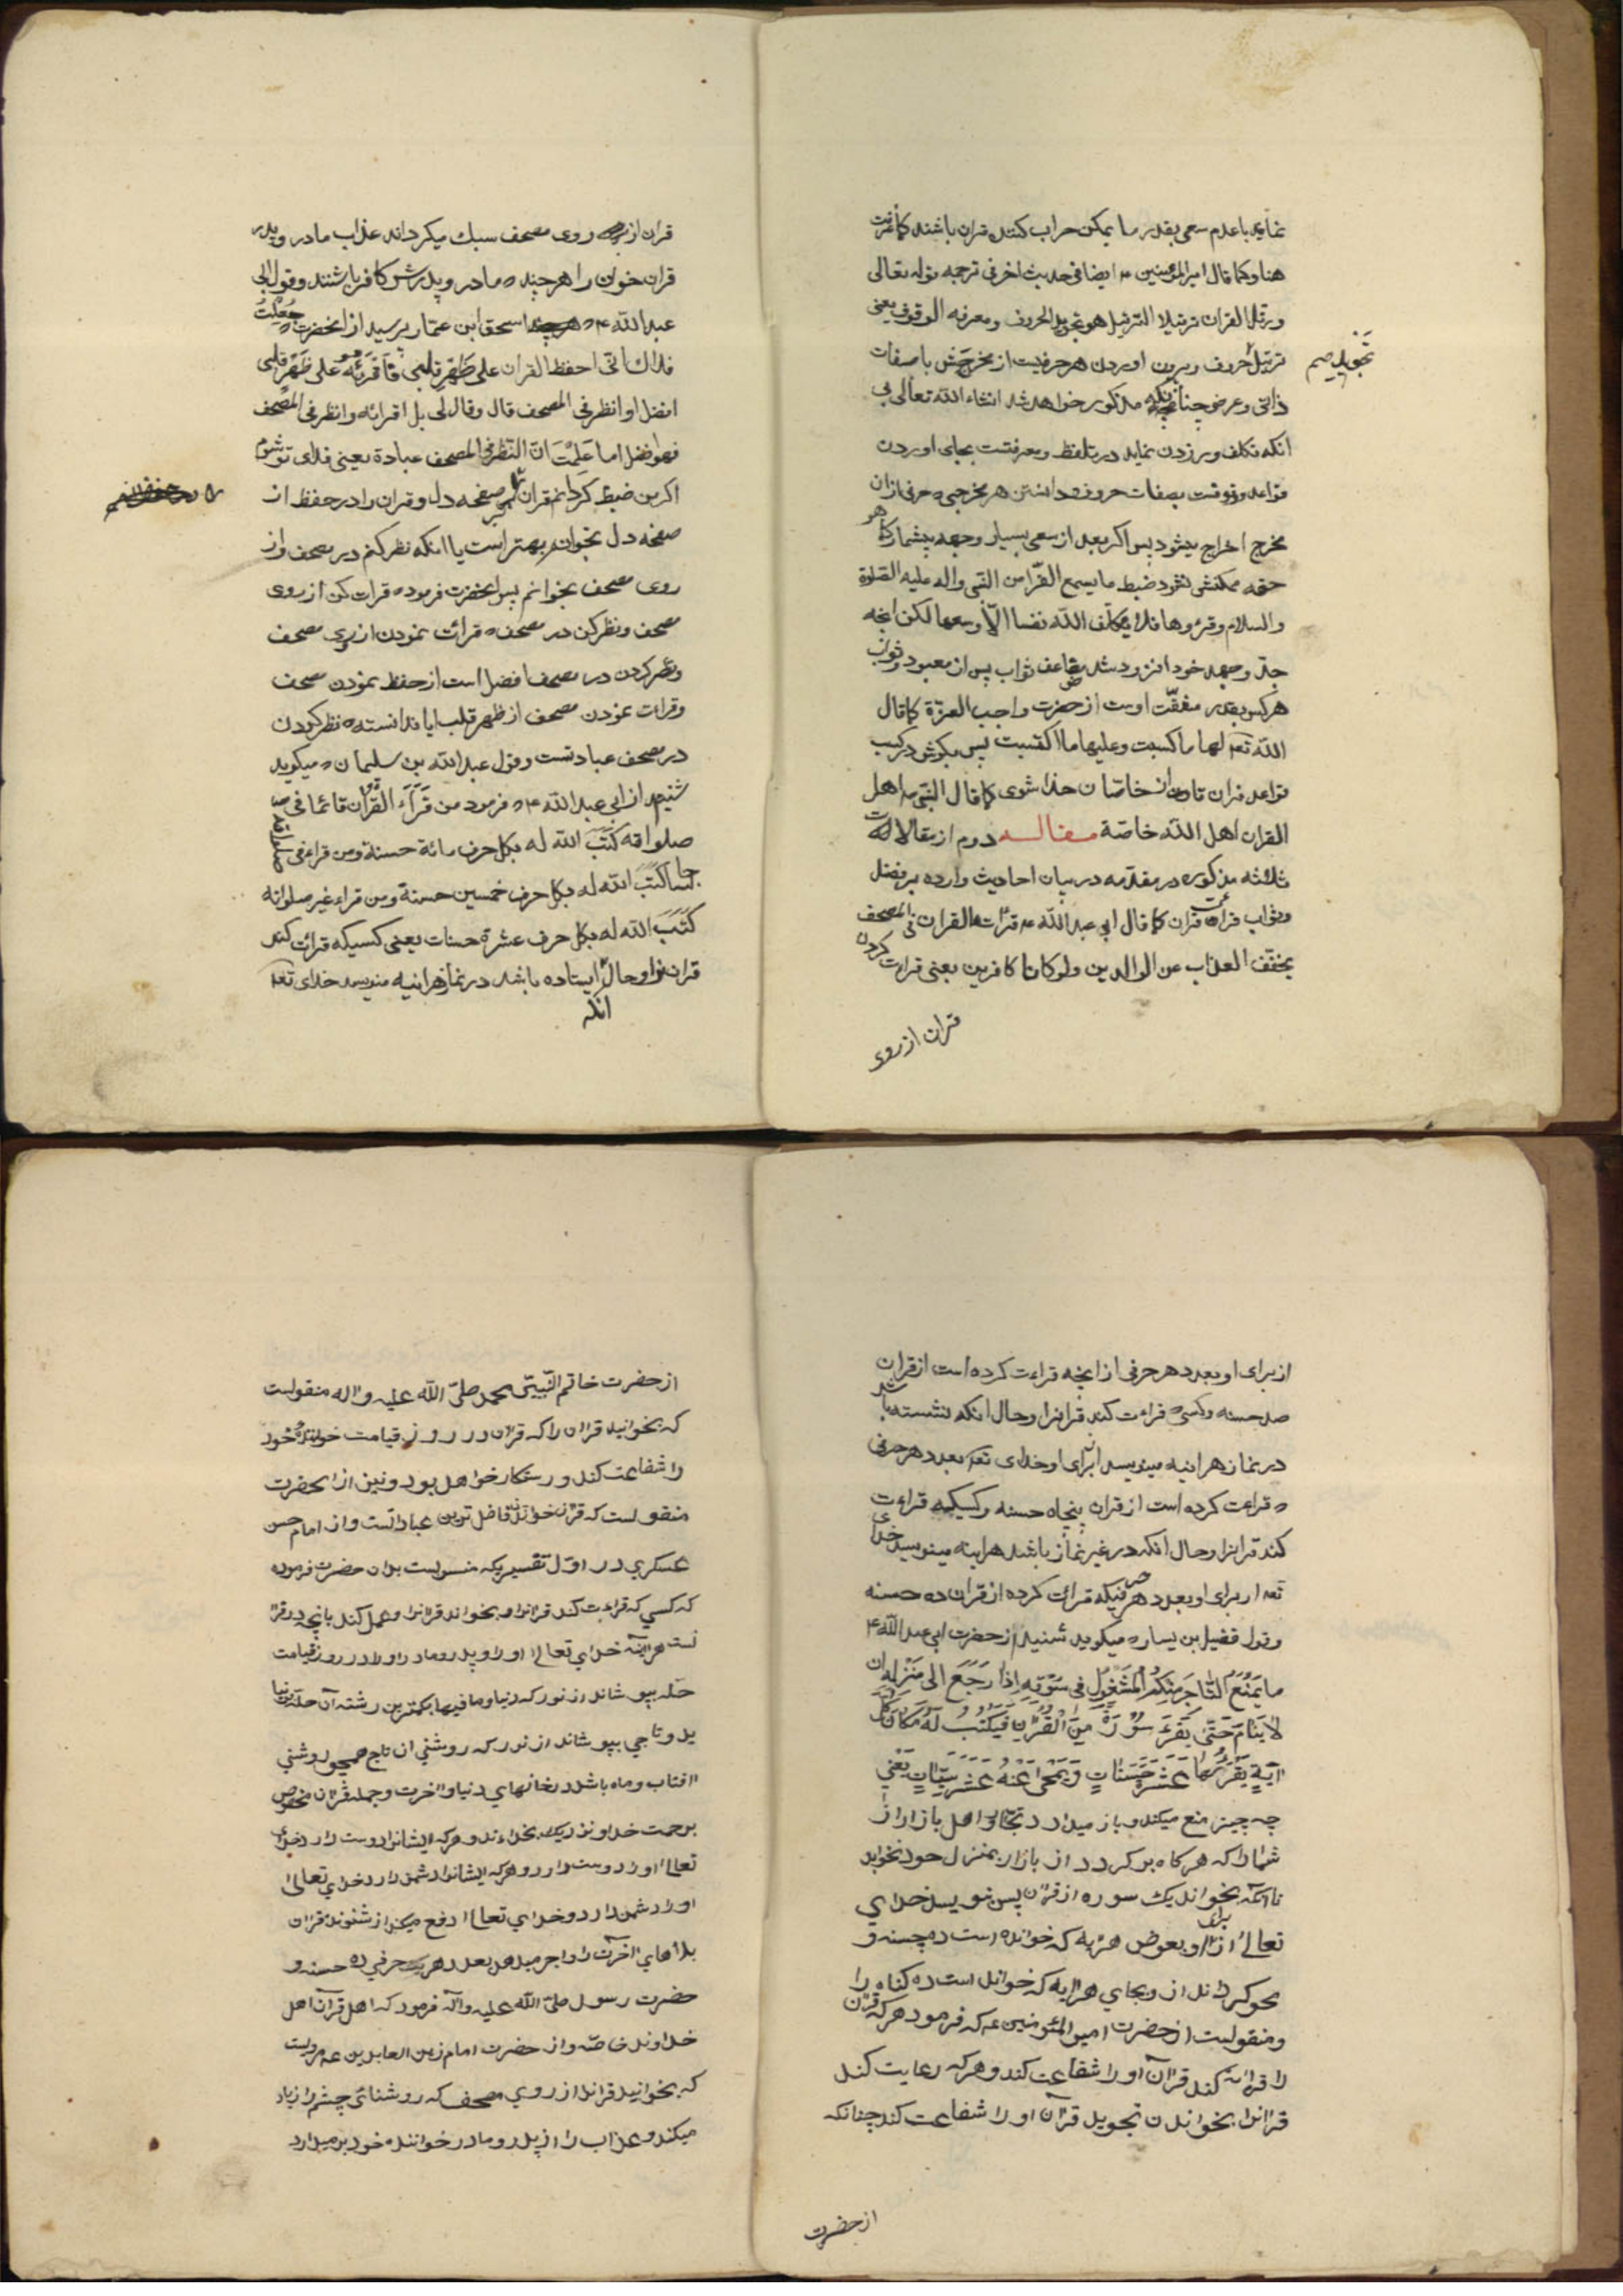 نماید باعدم سعی بقدر ما یمکن حراب کننده قران باشند کما عرفت
هنا و کما قال امیرالمؤمنین ء ایضا فی حدیث اخر فی ترجمه قوله تعالی
و رتل القران ترتیلا الترتیل هو تجوید الحروف و معرفه الوقوف یعنی
ترتیل حروف و بیرون اوردن هر حرفیست از مخرجش با صفات
تجوید صم
ذاتی و عرضی چنانکه مذکور خواهد شد انشاء الله تعالی بی
انکه تکلف ورزدن نماید در تلفظ و معرفتست بجای اوردن
قواعد و وقوفست بصفات حروف و دانستن هر مخرجی ه حرفی از ان
مخرج اخراج میشود پس اکر بعد از سعی بسیار و جهد بیشمار کما هو
حقه ممکنش نشود ضبط ما یسمع القرا من النبی واله علیه الصلوة
والسلام و قرؤها فلا یکلف الله نفسا الا وسعها لکن انچه
جد و جهد خود افزود شد مضاعف ثواب پس از معبود و ثواب
هر کس بقدر مشقت اوست از حضرت واجب العزة کما قال
الله تعه لها ما کسبت و علیها ما اکتسبت پس بکوش در کسب
قواعد قران تا از ان خاصان خدا شوی کما قال النبی ص اهل
القران اهل الله خاصة مقاله دوم از مقالات
ثلاثه مذکوره در مقدمه در بیان احادیث وارده بر فضل
و ثواب قراءت قران کما قال ابی عبدالله ء قرائت القران فی المصحف
یخفف العذاب عن الوالدین ولو کانا کافرین یعنی قراءت کردن
قران از روی
قران از روی مصحف سبک میکرداند عذاب مادر و پدر
قران خوان را هر چند ه مادر و پدرش کافر باشند و قول ابی
عبدالله ء ه اسحق ابن عمار پرسید از انحضرت ه جعلت
فداک انی احفظ القران علی ظهر قلبی فاقرئه علی ظهر قلبی
افضل او انظر فی المصحف قال و قال لی بل اقرائه و انظر فی المصحف
فهو افضل اما علمت ان النظر فی المصحف عبادة یعنی فدای تو شوم
اکر من ضبط کردانم قران را بر صفحه دل و قران را در حفظ از
صفحه دل بخوانم بهتر است یا انکه نظر کنم در مصحف و از
روی مصحف بخوانم پس انحضرت فرمود ه قرات کن از روی
مصحف و نظر کن در مصحف ه قرائت نمودن از روی مصحف
و نظر کردن در مصحف افضل است از حفظ نمودن مصحف
و قرات نمودن مصحف از ظهر قلب ایا ندانسته ه نظر کردن
در مصحف عبادتست و قول عبدالله بن سلیمان ه میکوید
شنیدم از ابی عبدالله ء ه فرمود من قرأ القران قائما فی
صلواته کتب الله له بکل حرف مائة حسنة و من قراء فی صلواته
جالسا کتب الله له بکل حرف خمسین حسنة و من قراء غیر صلواته
کتب الله له بکل حرف عشرة حسنات یعنی کسیکه قرائت کند
قران را و حال انکه ایستاده باشد در نماز هراینه مینویسد خدای تعه
از برای او بعدد هر حرفی از انچه قراءت کرده است از قران
صد حسنه و کسی ه قراءت کند قرانرا و حال انکه نشسته باشد
در نماز هراینه مینویسد از برای او خدای تعه بعدد هر حرفی
ه قراعت کرده است از قران پنجاه حسنه و کسیکه قراءت
کند قرانرا و حال انکه در غیر نماز باشد هراینه مینویسد خدای
تعه از برای او بعدد هر حرفیکه قرائت کرده از قران ده حسنه
و قول فضیل بن یسار ه میکوید شنیدم از حضرت ابی عبدالله ء
ما یمنع التاجر منکم المشغول فی سوقه اذا رجع الی منزله ان
لا ینام حتی یقرء سورة من القران فیکتب له مکان کل
ایة یقرئها عشرة حسنات و یمحی عنه عشر سیئات یعنی
چه چیز منع میکند و باز میدارد تجار و اهل بازار از
شما را که هر کاه بر کردد از بازار بمنزل خود نخوابد
تا انکه بخواند یک سوره از قران پس نویسد خدای
تعالی از برای او بعوض هر ایه که خوانده است ده حسنه و
محو کرداند از و بجای هر ایه که خواندا است ده کناه را
و منقولست از حضرت امیر المؤمنین ع که فرمود هر که قران
را قرائت کند قرآن او را شفاعت کند و هر که رعایت کند
قرانرا بخواندن تجوید قرآن او را شفاعت کند چنانکه
از حضرت
از حضرت خاتم النبیین محمد صلی الله علیه و اله منقولست
که بخوانید قران را که قران در روز قیامت خواننده خود
را شفاعت کند و رستکار خواهد بود و نیز از انحضرت
منقولست که قران خواندن فاضل ترین عباداتست و از امام حسن
عسکری در اول تفسیریکه منسوبست بدان حضرت فرموده
که کسی که قراءت کند قرانرا و بخواند قرانرا و عمل کند بانچه در قرا
نست هراینه خدای تعالی او را و پدر و مادر او را در روز قیامت
حله بپوشاند از نور که دنیا و ما فیها بکمترین رشته آن حله نیا
ید و تاجی بپوشاند از نور که روشنی ان تاج همچو روشنی
افتاب و ماه باشد در خانهای دنیا و اخرت و جمله قران مخصوص
برحمت خداوند نزدیک بخداءند و هر که ایشانرا دوست دارد خدای
تعالی او را دوست دارد و هر که ایشانرا دشمن دارد خدای تعالی
او را دشمن دارد و خدای تعالی دفع میکند از شنونده قران
بلاهای اخرت را و اجر میدهد بعدد هر یک حرفی ده حسنه و
حضرت رسول صلی الله علیه و آله فرمود که اهل قرآن اهل
خداوند خاصه و از حضرت امام زین العابدین ع مرویست
که بخوانید قرانرا از روی مصحف که روشنائی چشم را زیاد
میکند و عذاب را از پدر و مادر خواننده خود بر میدارد